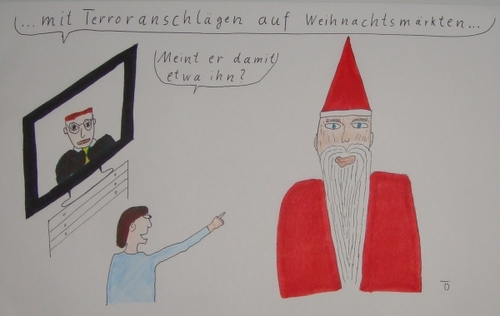 ...mit Terroranschlägen auf Weihnachtsmärkten...
Meint er damit
etwa ihn?